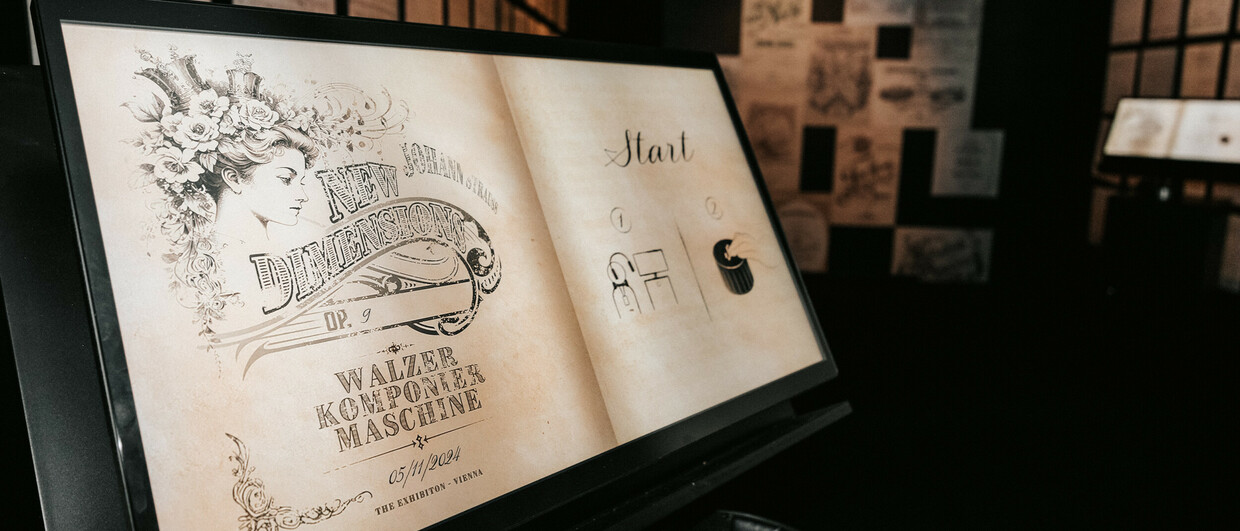 JOHANN STRAUSS
NEW
DIMENSIONS
OP. 9
WALZER
KOMPONIER
MASCHINE
05/11/2024
THE EXHIBITON - VIENNA
Start
1
2